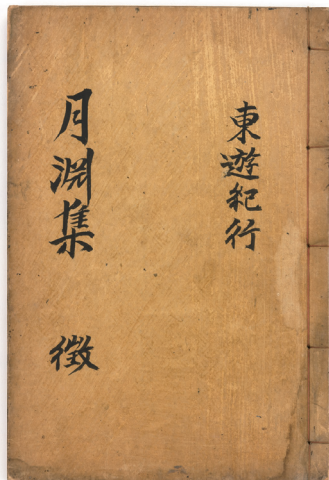 東遊紀行
月淵集 徵